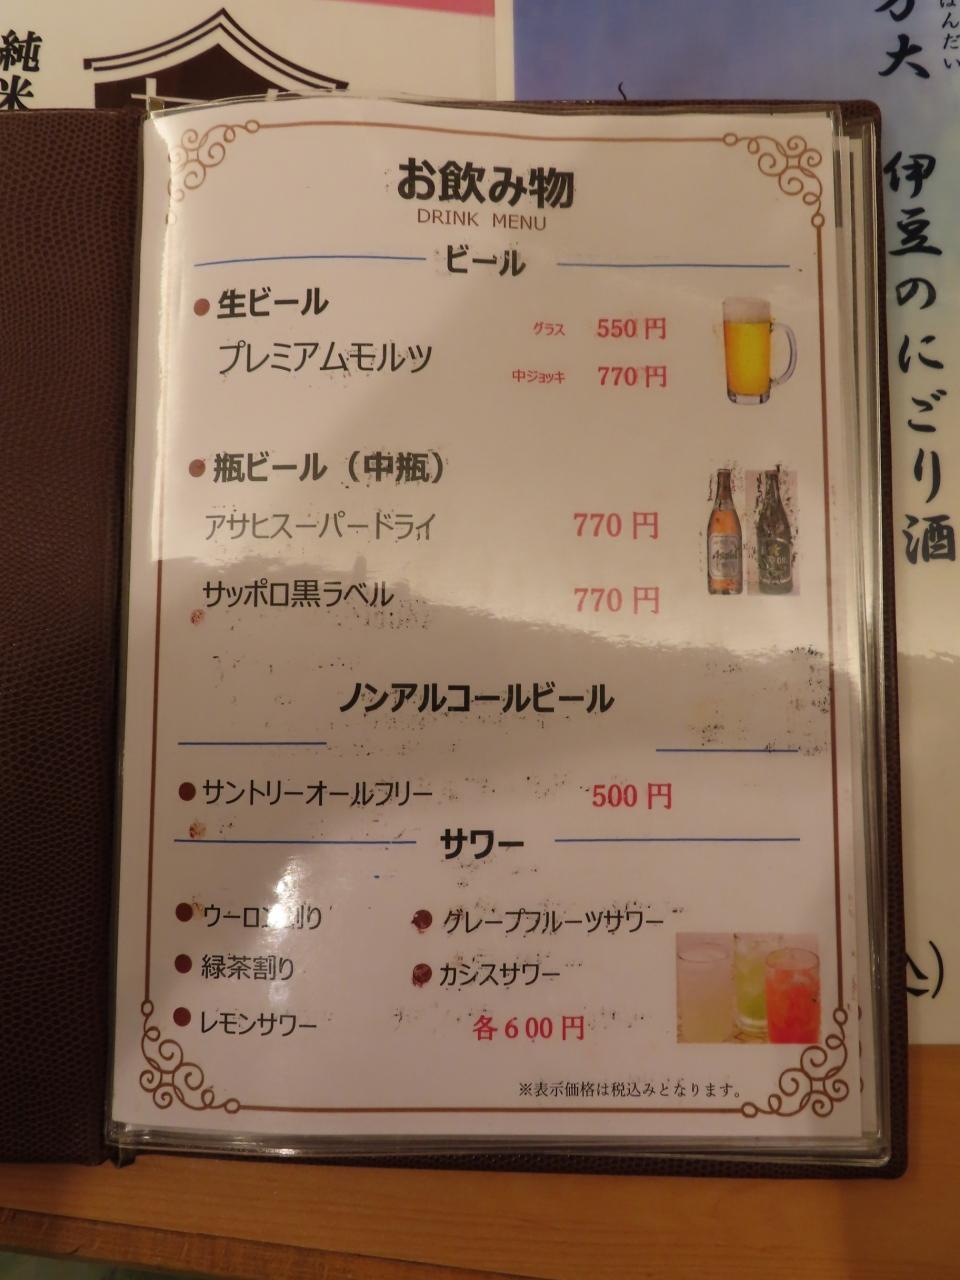 純米
お飲み物
DRINK MENU
ビール
生ビール
プレミアムモルツ
グラス 550円
中ジョッキ 770円
瓶ビール（中瓶）
アサヒスーパードライ 770円
サッポロ黒ラベル 770円
ノンアルコールビール
サントリーオールフリー 500円
サワー
ウーロン割り
グレープフルーツサワー
緑茶割り
カシスサワー
レモンサワー
各600円
※表示価格は税込みとなります。
伊豆のにごり酒